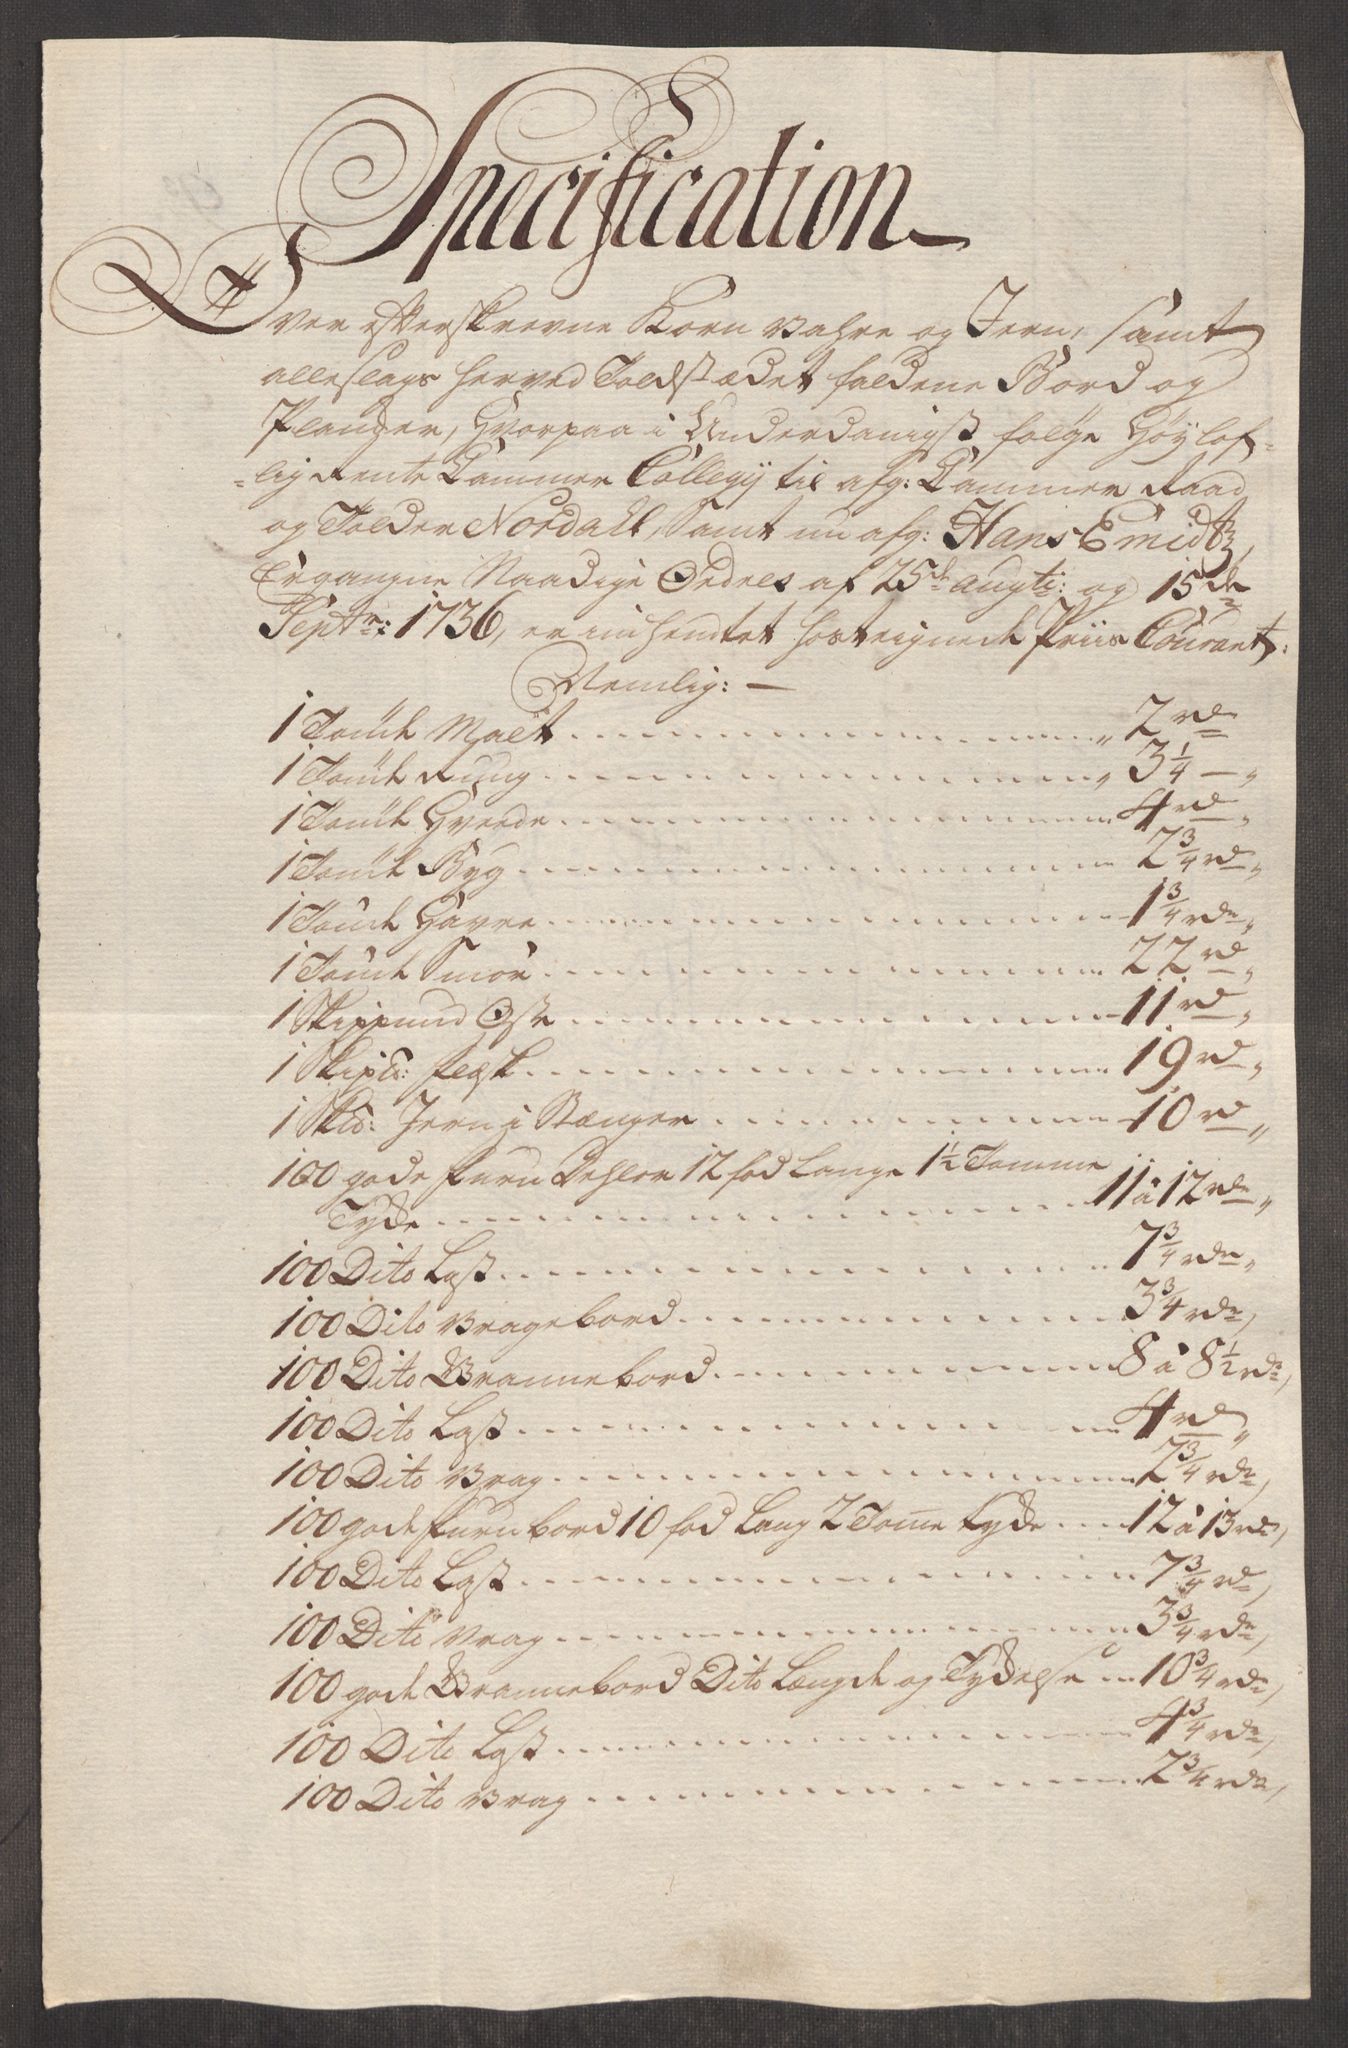 Specification
Over efterskrevne Korn Vahre og Jern, samt
alleslags herved Toldstædet faldene Bord og
Plancker, Hvorpaa i Underdanigst følge Höylof-
-lig Rente Cammer Collegij til afg: Cammer Raad
og Tolder Nordahl, Samt nu afg: Hans
Ergangne Naadige Ordres af 25de augti: og 15de
Septr: 1736, er indhendtet hostegnede Priis Courant:
Nemlig: —
1 Tönde Malt 2 rd
1 Tönde Rug 3 1/4 — "
1 Tönde Hvede 4 rd "
1 Tönde Byg 2 3/4 rd "
1 Tönde Havre 1 3/4 rdr "
1 Tönde Smör 22 rd "
1 Skippund Ost 11 rd "
1 Skipd: flesk 19 rd "
1 Skd: Jern i Stænger 10 rd "
100 gode furu Dehler 12 fod Lange 1 1/2 Tomme
Tyde 11 à 12 rdr "
100 Dito Last 7 3/4 rdr "
100 Dito Vragebord 3 3/4 rdr,
100 Dito Grannebord 8 à 8 1/2 rdr,
100 Dito Last 4 rd "
100 Dito Vrag 2 3/4 rdr,
100 gode furu bord 10 fod Lang 2 Tome tyde 12 à 13 rdr,
100 Dito Last 7 3/4 rdr,
100 Dito Vrag 3 3/4 rdr,
100 gode Grannebord Dito Længde og Tydelse 10 3/4 rdr,
100 Dito Last 4 3/4 rdr,
100 Dito Vrag 2 3/4 rdr,